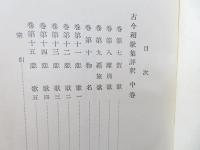 目次
古今和歌集評釈 中巻
巻第七賀歌
巻第八離別歌
巻第九羇旅歌
巻第十物名
巻第十一恋歌一
巻第十二恋歌二
巻第十三恋歌三
巻第十四恋歌四
巻第十五恋歌五
索引